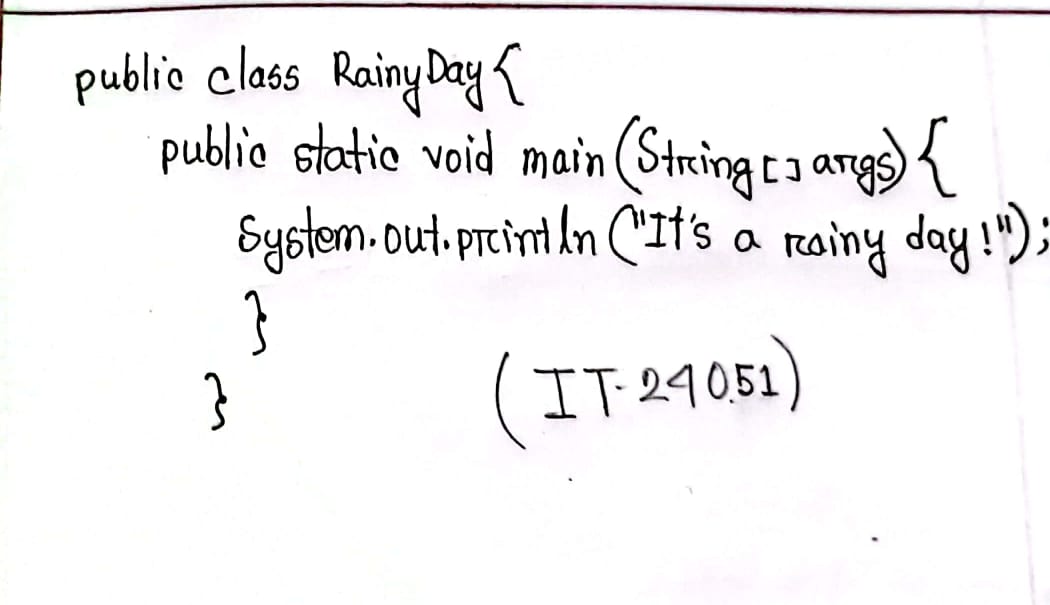 public class RainyDay {
public static void main (String [] args) {
System.out.println ("It's a rainy day!");
}
}
(IT-24051)